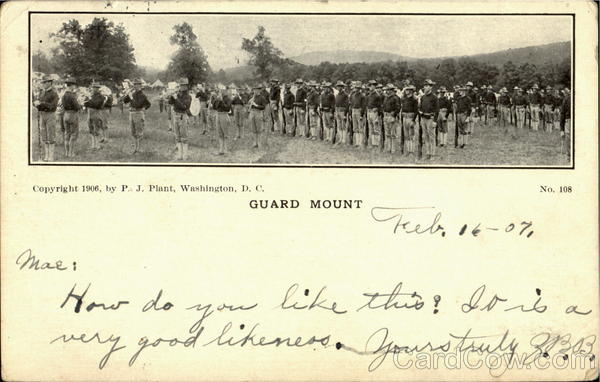 Copyright 1906, by P. J. Plant, Washington, D. C. No. 108
GUARD MOUNT
Feb. 16-07.
Mae:
How do you like this? It is a
very good likeness. Yours truly
CardCow.com